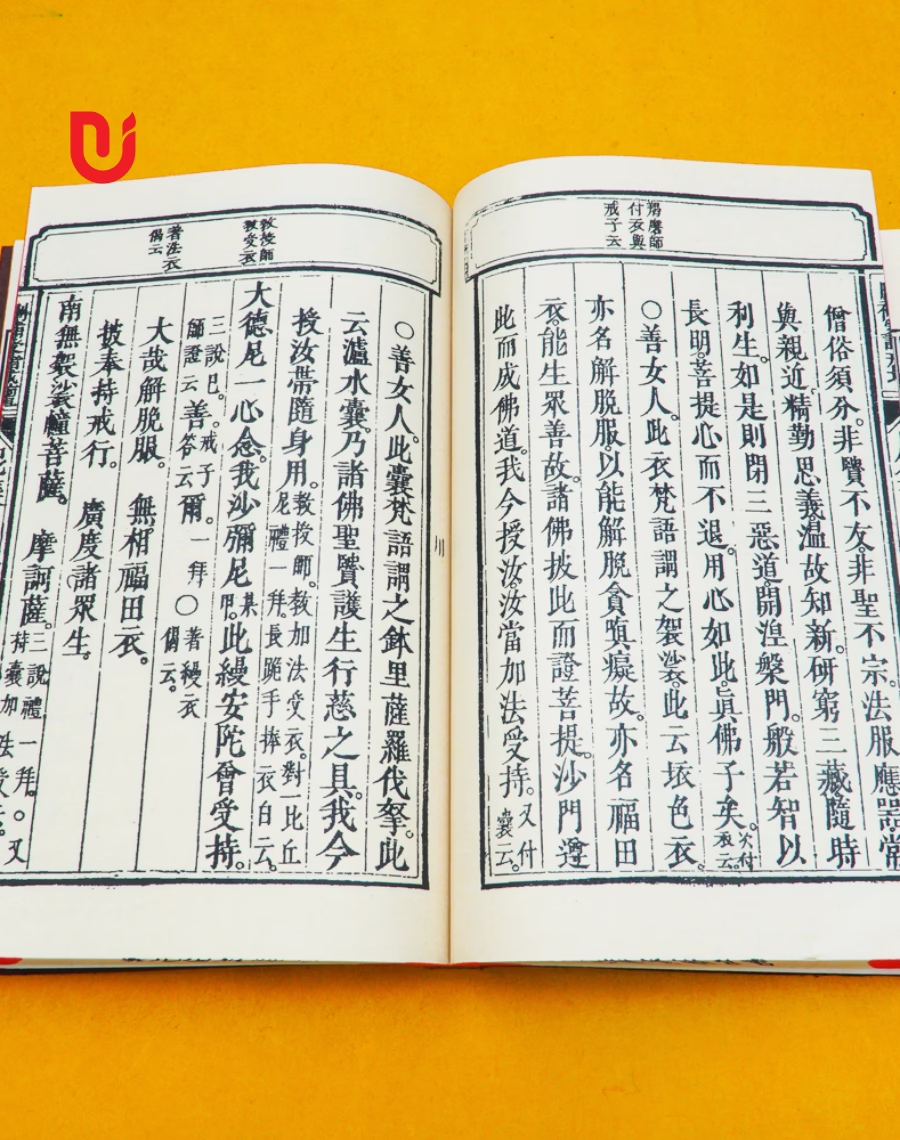 羯磨師
付衣與
戒子云
僧俗須分。非賢不友。非聖不宗。法服應器。常
與親近。精勤思義。溫故知新。研窮三藏。隨時
利生。如是則閉三惡道。開涅槃門。般若智以
長明。菩提心而不退。用心如此。眞佛子矣。次付衣云。
○善女人。此衣梵語謂之袈裟。此云壞色衣。
亦名解脫服。以能解脫貪嗔癡故。亦名福田
衣。能生眾善故。諸佛披此而證菩提。沙門遵
此而成佛道。我今授汝。汝當加法受持。又付囊云。
教授師
教受衣
著法衣
偈云
○善女人。此囊梵語謂之鉢里薩羅伐拏。此
云濾水囊。乃諸佛聖賢護生行慈之具。我今
授汝帶隨身用。教授師。教加法受衣。對一比丘尼禮一拜。長跪手捧衣白云。
大德尼一心念。我沙彌尼某甲。此縵安陀會受持。
三說已。師證云善。戒子答云爾。一拜○著縵衣偈云。
大哉解脫服。 無相福田衣。
披奉持戒行。 廣度諸眾生。
南無袈裟幢菩薩。 摩訶薩。三說禮一拜。○又持囊加法受